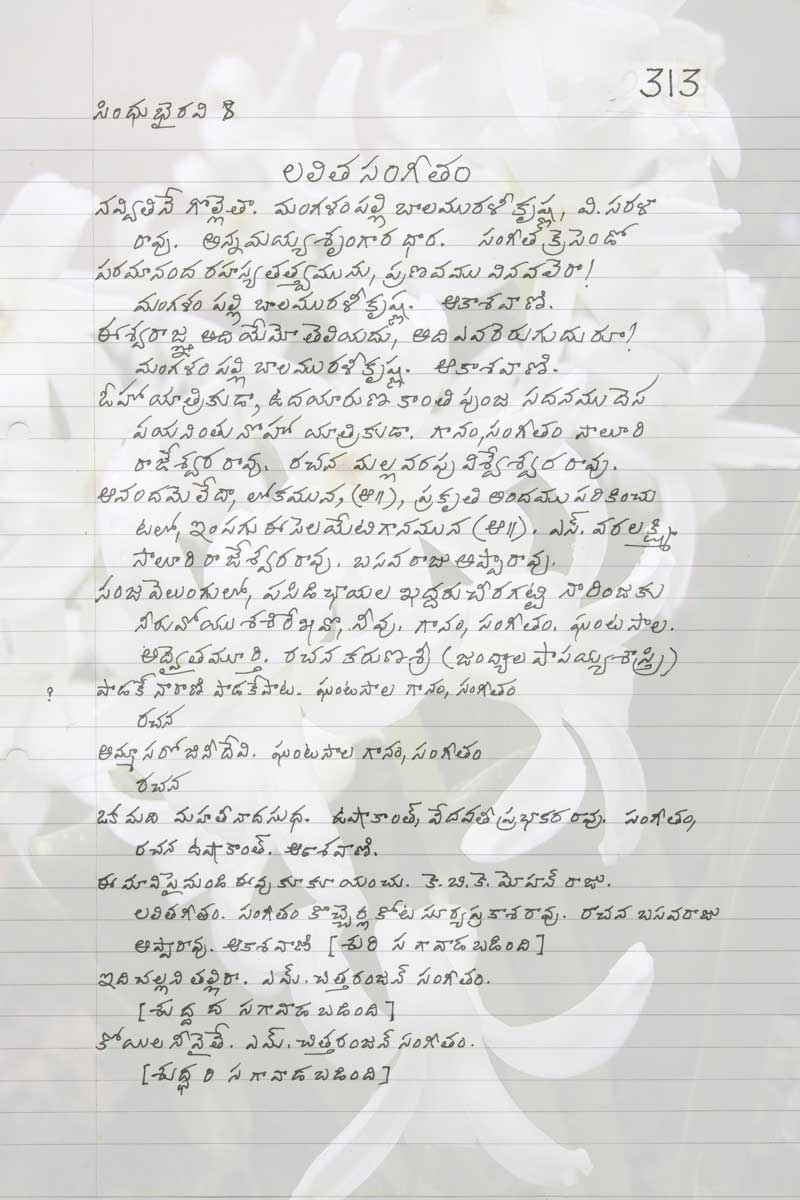 313
సింధుభైరవి 8
లలిత సంగీతం
నవ్వితినే గొల్లెతా. మంగళంపల్లి బాలమురళీకృష్ణ, వి. సరళా
రావు. అన్నమయ్య శృంగార ధార. సంగీత క్రెసెండో
పరమానంద రహస్య తత్త్వమును, ప్రణవము వినవలెరా!
మంగళంపల్లి బాలమురళీకృష్ణ. ఆకాశవాణి.
ఈశ్వరాజ్ఞ అది యేమో తెలియదు, అది ఎవరెరుగుదురూ!
మంగళంపల్లి బాలమురళీకృష్ణ. ఆకాశవాణి.
ఓహో యాత్రికుడా, ఉదయారుణ కాంతి పుంజ సదనము దెస
పయనింతువోహో యాత్రికుడా. గానం, సంగీతం సాలూరి
రాజేశ్వర రావు. రచన మల్లవరపు విశ్వేశ్వర రావు.
ఆనందమె లేదా, లోకమున, (ఆ॥), ప్రకృతి అందము పరికించు
టలో, ఇంపగు ఈ సెలయేటి గానమున (ఆ॥). ఎస్. వరలక్ష్మి
సాలూరి రాజేశ్వరరావు. బసవరాజు అప్పారావు.
సంజ వెలుంగులో, పసిడి ఛాయల ఖద్దరు చీరగట్టి నారింజకు
నీరువోయు శశిరేఖవొ, నీవు. గానం, సంగీతం. ఘంటసాల.
అద్వైతమూర్తి. రచన కరుణశ్రీ (జంధ్యాల పాపయ్యశాస్త్రి)
? పాడకే నారాణి పాడకే పాట. ఘంటసాల గానం, సంగీతం
రచన
అమ్మా సరోజినీదేవి. ఘంటసాల గానం, సంగీతం
రచన
ఒక మది మహతీనాదసుధ. ఉషాకాంత్, వేదవతీ ప్రభాకరరావు. సంగీతం,
రచన ఉషాకాంత్. ఆకాశవాణి.
ఈ మావిపైనుండి ఈవు కూకూ యంచు. కె. బి. కె. మోహన్ రాజు.
లలితగీతం. సంగీతం కొచ్చెర్లకోట సూర్యప్రకాశరావు. రచన బసవరాజు
అప్పారావు. ఆకాశవాణి [శురి స గా వాడబడింది]
ఇది చల్లని తల్లిరా. ఎమ్. చిత్తరంజన్ సంగీతం.
[శుద్ధ ద స గా వాడబడింది]
కోయిల నీవైతే. ఎమ్. చిత్తరంజన్ సంగీతం.
[శుద్ధ రి స గా వాడబడింది]